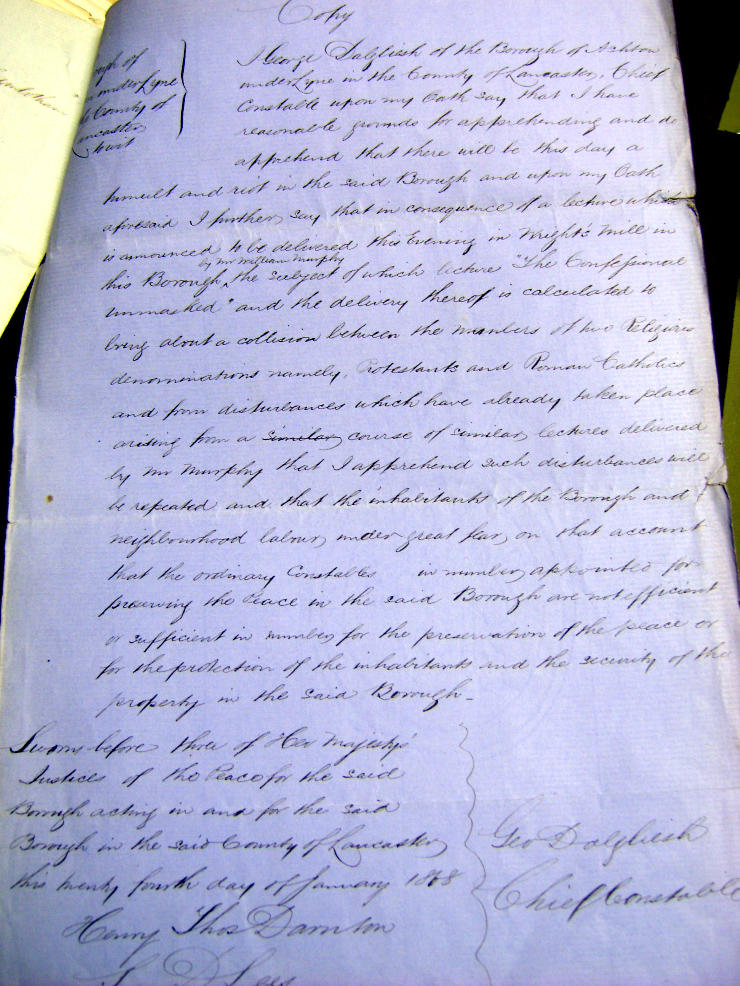 Copy
ugh of
underLyne
County of
ancaster
I George Dalgliesh of the Borough of Ashton
underLyne in the County of Lancaster, Chief
Constable upon my Oath say that I have
reasonable grounds for apprehending and do
apprehend that there will be this day a
tumult and riot in the said Borough and upon my Oath
aforesaid I further say that in consequence of a lecture which
is announced to be delivered this Evening in Wright's Mill in
by Mr William Murphy
this Borough, the subject of which lecture "The Confessional
Unmasked" and the delivery thereof is calculated to
bring about a collision between the members of two Religious
denominations namely, Protestants and Roman Catholics
and from disturbances which have already taken place
arising from a similar course of similar lectures delivered
by Mr Murphy that I apprehend such disturbances will
be repeated and that the inhabitants of the Borough and
neighbourhood labour under great fear on that account
that the ordinary Constables in number appointed for
preserving the Peace in the said Borough are not efficient
or sufficient in number for the preservation of the peace or
for the protection of the inhabitants and the security of the
property in the said Borough.
Sworn before three of Her Majesty's
Justices of the Peace for the said
Borough acting in and for the said
Borough in the said County of Lancaster
this twenty fourth day of January 1868
Geo Dalgliesh
Chief Constable
Henry Thos Darnton
D Lees